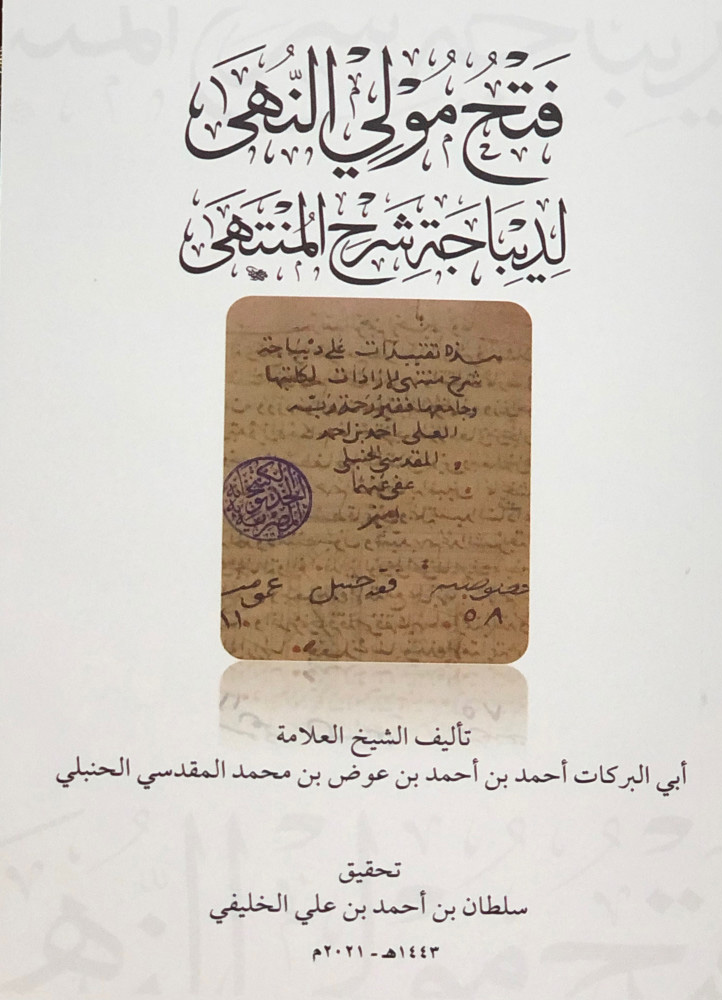 فَتْحُ مُوْلِي النُّهَى
لِدِيْبَاجَةِ شَرْحِ المُنْتَهَى
هذه تقييدات على ديباجة
شرح منتهى الارادات لكاتبها
وجامعها فقير رحمة ربه
العلى احمد بن احمد
المقدسي الحنبلي
عفى عنهما
امين
الكتبخانة
الخديوية
المصرية
خصوصية فقه حنبل عمومية
٥٨ ١١
تأليف الشيخ العلامة
أبي البركات أحمد بن أحمد بن عوض بن محمد المقدسي الحنبلي
تحقيق
سلطان بن أحمد بن علي الخليفي
١٤٤٣هـ - ٢٠٢١م